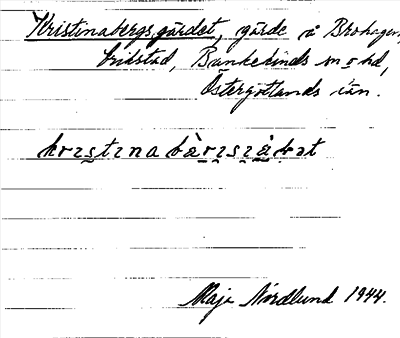 Kristinabergs gärdet, gärde å Brohagen,
Grebstad, Bankekinds sn o hd,
Östergötlands län.
krɪstɪna bàrɪsjä̀ɐət
Maja Nordlund 1944.